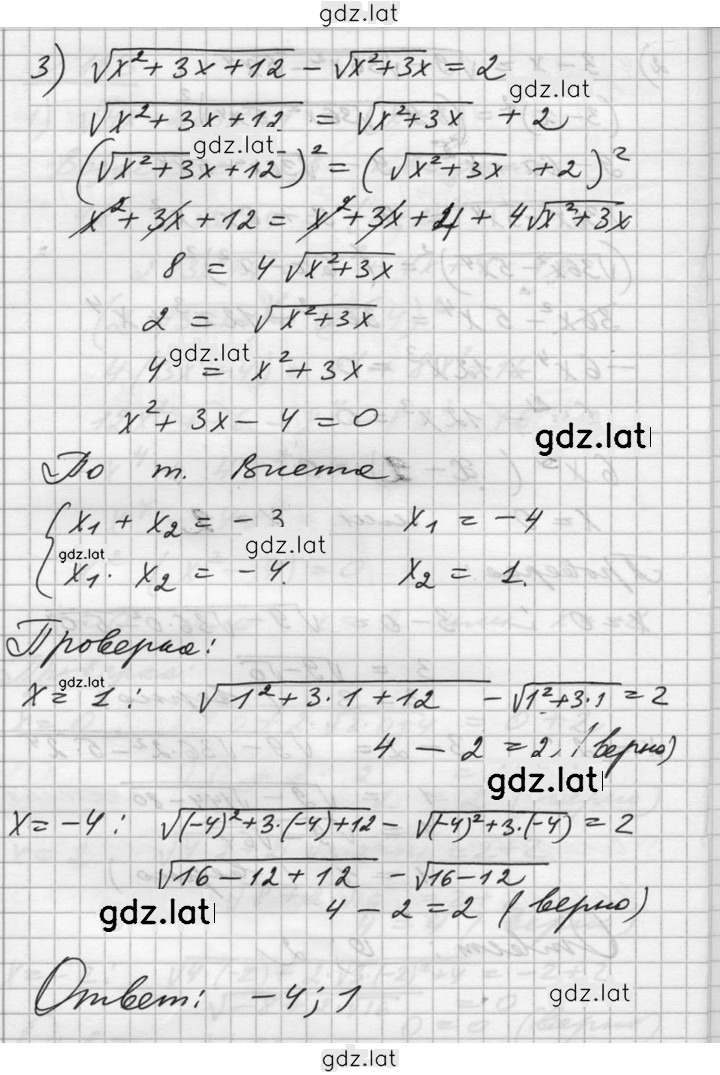 gdz.lat
3) √(x² + 3x + 12) − √(x² + 3x) = 2
gdz.lat
√(x² + 3x + 12) = √(x² + 3x) + 2
gdz.lat
(√(x² + 3x + 12))² = (√(x² + 3x) + 2)²
x² + 3x + 12 = x² + 3x + 4 + 4√(x² + 3x)
8 = 4√(x² + 3x)
2 = √(x² + 3x)
gdz.lat
4 = x² + 3x
x² + 3x − 4 = 0
gdz.lat
По т. Виета
{ x₁ + x₂ = −3 x₁ = −4
gdz.lat gdz.lat
x₁ · x₂ = −4. x₂ = 1.
Проверка:
gdz.lat
x = 1: √(1² + 3·1 + 12) − √(1² + 3·1) = 2
4 − 2 = 2, (верно)
gdz.lat
x = −4: √((−4)² + 3·(−4) + 12) − √((−4)² + 3·(−4)) = 2
√(16 − 12 + 12) − √(16 − 12)
4 − 2 = 2 (верно)
gdz.lat
Ответ: −4; 1
gdz.lat
gdz.lat